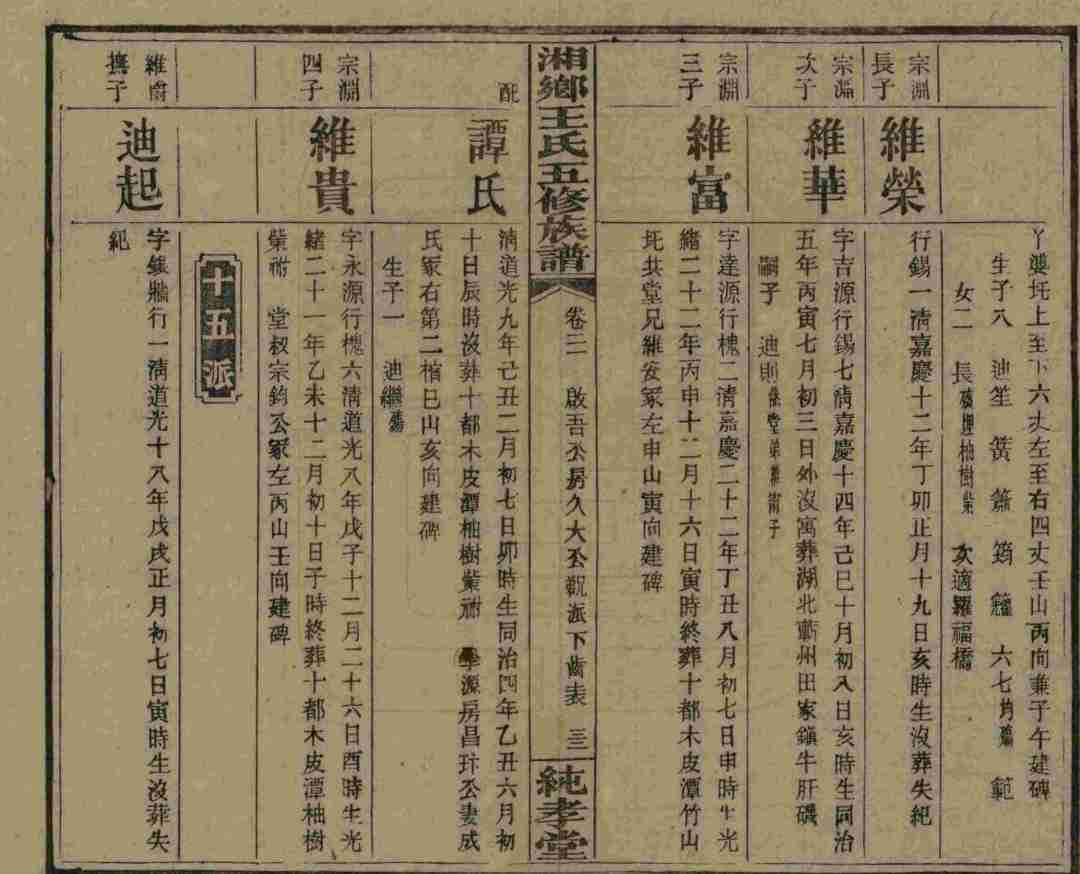 丫塿圫上至下六丈左至右四丈壬山丙向兼子午建碑
生子八 迪笙 簧 簫 筠 六七均殤 範
女二 長殤塟柚樹 次適羅福橋
宗淵長子
維榮
行錫一清嘉慶十二年丁卯正月十九日亥時生沒葬失紀
宗淵次子
維華
字吉源行錫七清嘉慶十四年己巳十月初八日亥時生同治
五年丙寅七月初三日外沒寓葬湖北蘄州田家鎮牛肝磯
嗣子 迪則
宗淵三子
維富
字達源行槐二清嘉慶二十二年丁丑八月初七日申時生光
緒二十二年丙申十二月十六日寅時終葬十都木皮潭竹山
圫共堂兄維安冢左申山寅向建碑
湘鄉王氏五修族譜
卷三 啟吾公房久大公派下齒表 三三
純孝堂
配
譚氏
清道光九年己丑二月初七日卯時生同治四年乙丑六月初
十日辰時沒葬十都木皮潭柚樹 學源房昌玤公妻成
氏冢右第二棺巳山亥向建碑
生子一 迪繼殤
宗淵四子
維貴
字永源行槐六清道光八年戊子十二月二十六日酉時生光
緒二十一年乙未十二月初十日子時終葬十都木皮潭柚樹
堂叔宗鈞公冢左丙山壬向建碑
十五派
維爵撫子
迪起
字錦 行一清道光十八年戊戌正月初七日寅時生沒葬失
紀